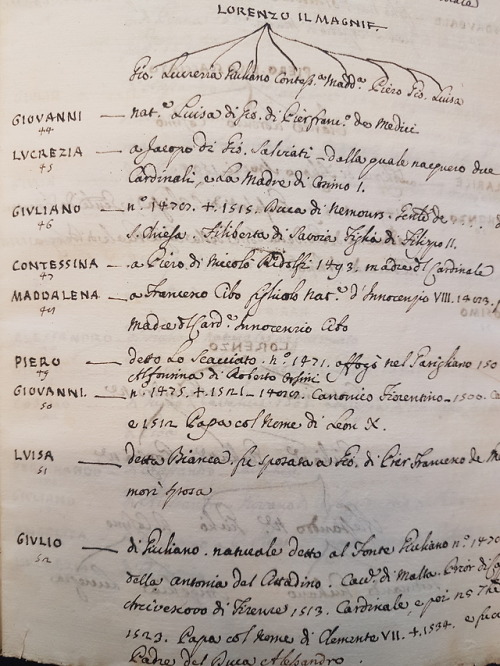 LORENZO IL MAGNIF.
Gio. Lucrezia Giuliano Contess.a Madd.a Piero Gio. Luisa
GIOVANNI 44 — nat.e Luisa di Gio. di Pierfranc.o de Medici
LVCREZIA 45 — a Jacopo di Gio. Salviati - dalla quale nacquero due
Cardinali, e La Madre di Cosimo I.
GIVLIANO 46 — n.o 1478. +. 1515. Duca di Nemours. Gente de
S. Chiesa. Filiberta di Savoia Figlia di Filippo II.
CONTESSINA 47 — a Piero di Nicolò Ridolfi 1493. madre del Cardinale
MADDALENA — a Francesco Cibo figliuolo Nat.e d'Innocenzio VIII.
madre del Card.e Innocenzio Cibo
PIERO 49 — detto Lo Scacciato. n.o 1471. affogò nel Garigliano 150
Alfonsina di Roberto Orsini
GIOVANNI. 50 — n. 1475. +. 1521. Canonico Fiorentino - 1500.
e 1512 Papa col Nome di Leon X.
LVISA 51 — detta Bianca. fu sposata a Gio. di Pier Francesco de Me
morì sposa
GIVLIO 52 — di Giuliano. naturale detto al Fonte Giuliano n.o 147
della Antonia del Cittadino. Cav.e di Malta. Prior di
Arcivescovo di Firenze 1513. Cardinale, e poi
1523. Papa col Nome di Clemente VII. +. 1534. e fu
Padre del Duca Alessandro.